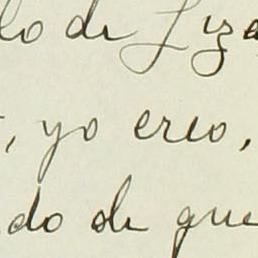 lo de Liza
, yo creo,
do de que